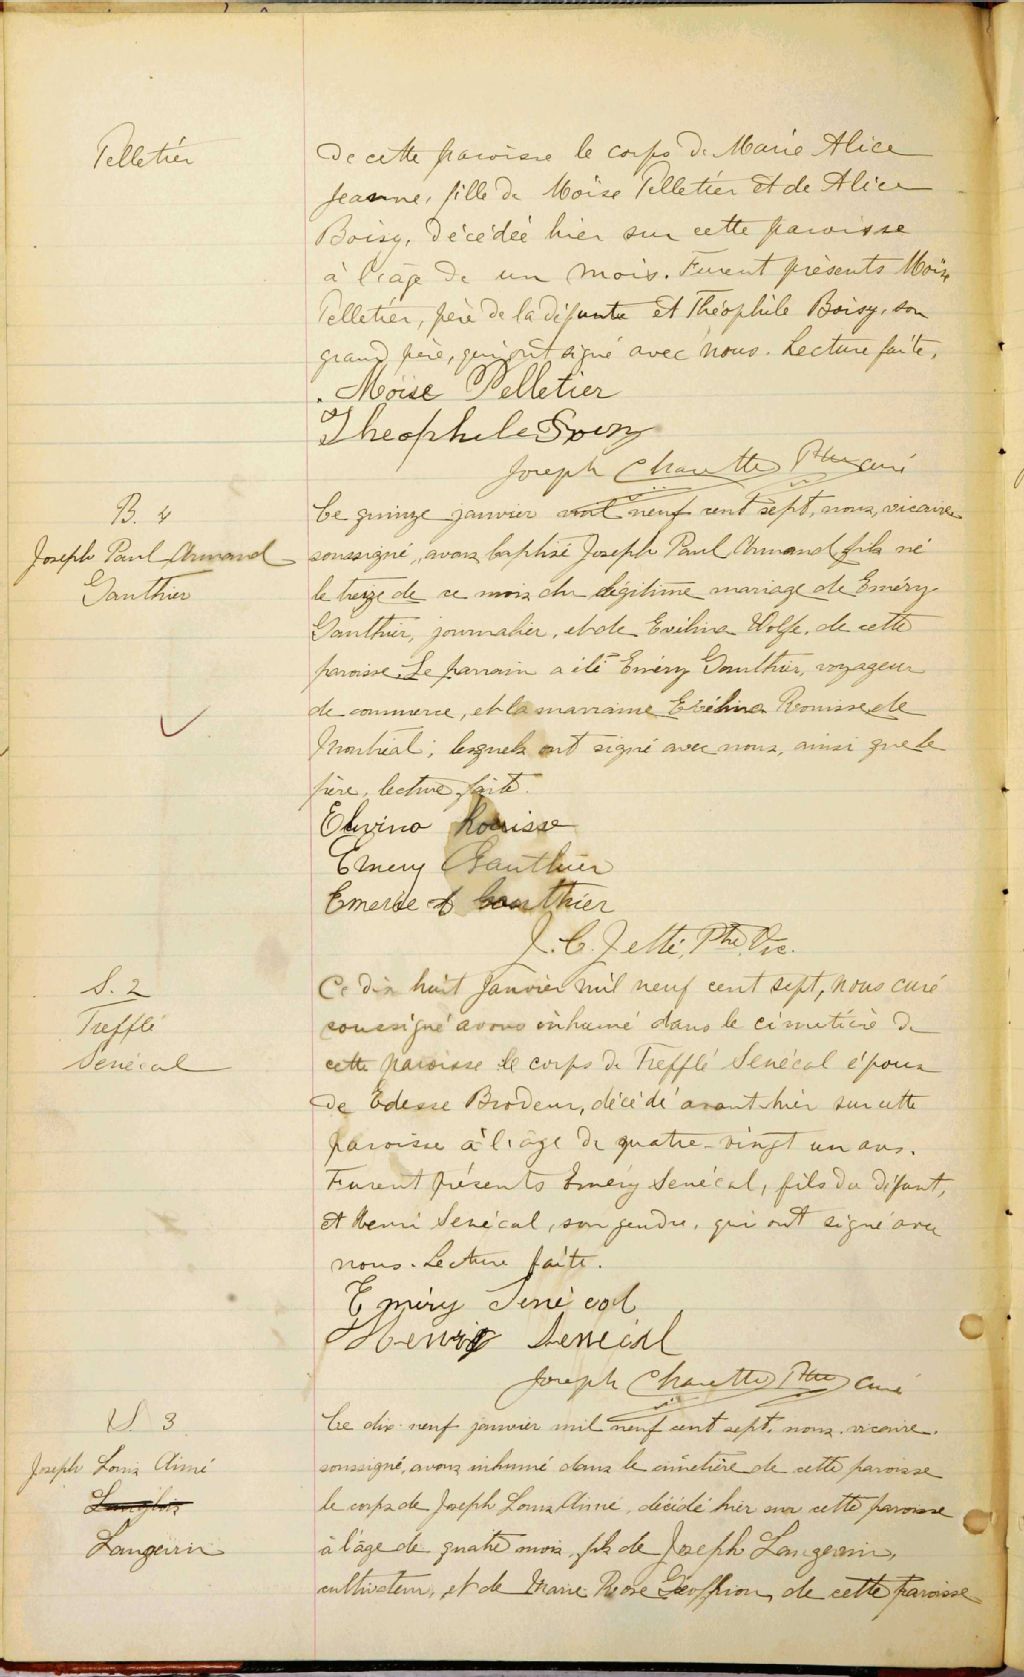 Pelletier
de cette paroisse le corps de Marie Alice
Jeanne, fille de Moïse Pelletier et de Alice
Boisy, décédée hier sur cette paroisse
à l'âge de un mois. Furent présents Moïse
Pelletier, père de la défunte et Théophile Boisy, son
grand père, qui ont signé avec nous. Lecture faite.
Moïse Pelletier
Theophile
Joseph Charette Ptre curé
B. 4
Joseph Paul Armand
Gauthier
Ce quinze janvier mil neuf cent sept, nous, vicaire
soussigné, avons baptisé Joseph Paul Armand, fils né
le treize de ce mois du légitime mariage de Eméry
Gauthier, journalier, et de Evélina Wolfe, de cette
paroisse. Le parrain a été Eméry Gauthier, voyageur
de commerce, et la marraine Evélina Rouisse de
Montréal; lesquels ont signé avec nous, ainsi que le
père, lecture faite.
Elvina Rouisse
Emery Gauthier
Gauthier
J. C. Jetté, Ptre Vic.
S. 2
Trefflé
Senécal
Ce dix huit Janvier mil neuf cent sept, nous curé
soussigné avons inhumé dans le cimetière de
cette paroisse le corps de Trefflé Senécal époux
de Edesse Brodeur, décédé avant-hier sur cette
paroisse à l'âge de quatre-vingt un ans.
Furent présents Eméry Senécal, fils du défunt,
et Henri Senécal, son gendre, qui ont signé avec
nous. Lecture faite.
Eméry Senécal
Henri Senécal
Joseph Charette Ptre curé
S. 3
Joseph Louis Aimé
Langlois
Langevin
Ce dix-neuf janvier mil neuf cent sept, nous, vicaire,
soussigné, avons inhumé dans le cimetière de cette paroisse
le corps de Joseph Louis Aimé, décédé hier sur cette paroisse
à l'âge de quatre mois, fils de Joseph Langevin,
cultivateur, et de Marie Rose Geoffrion, de cette paroisse